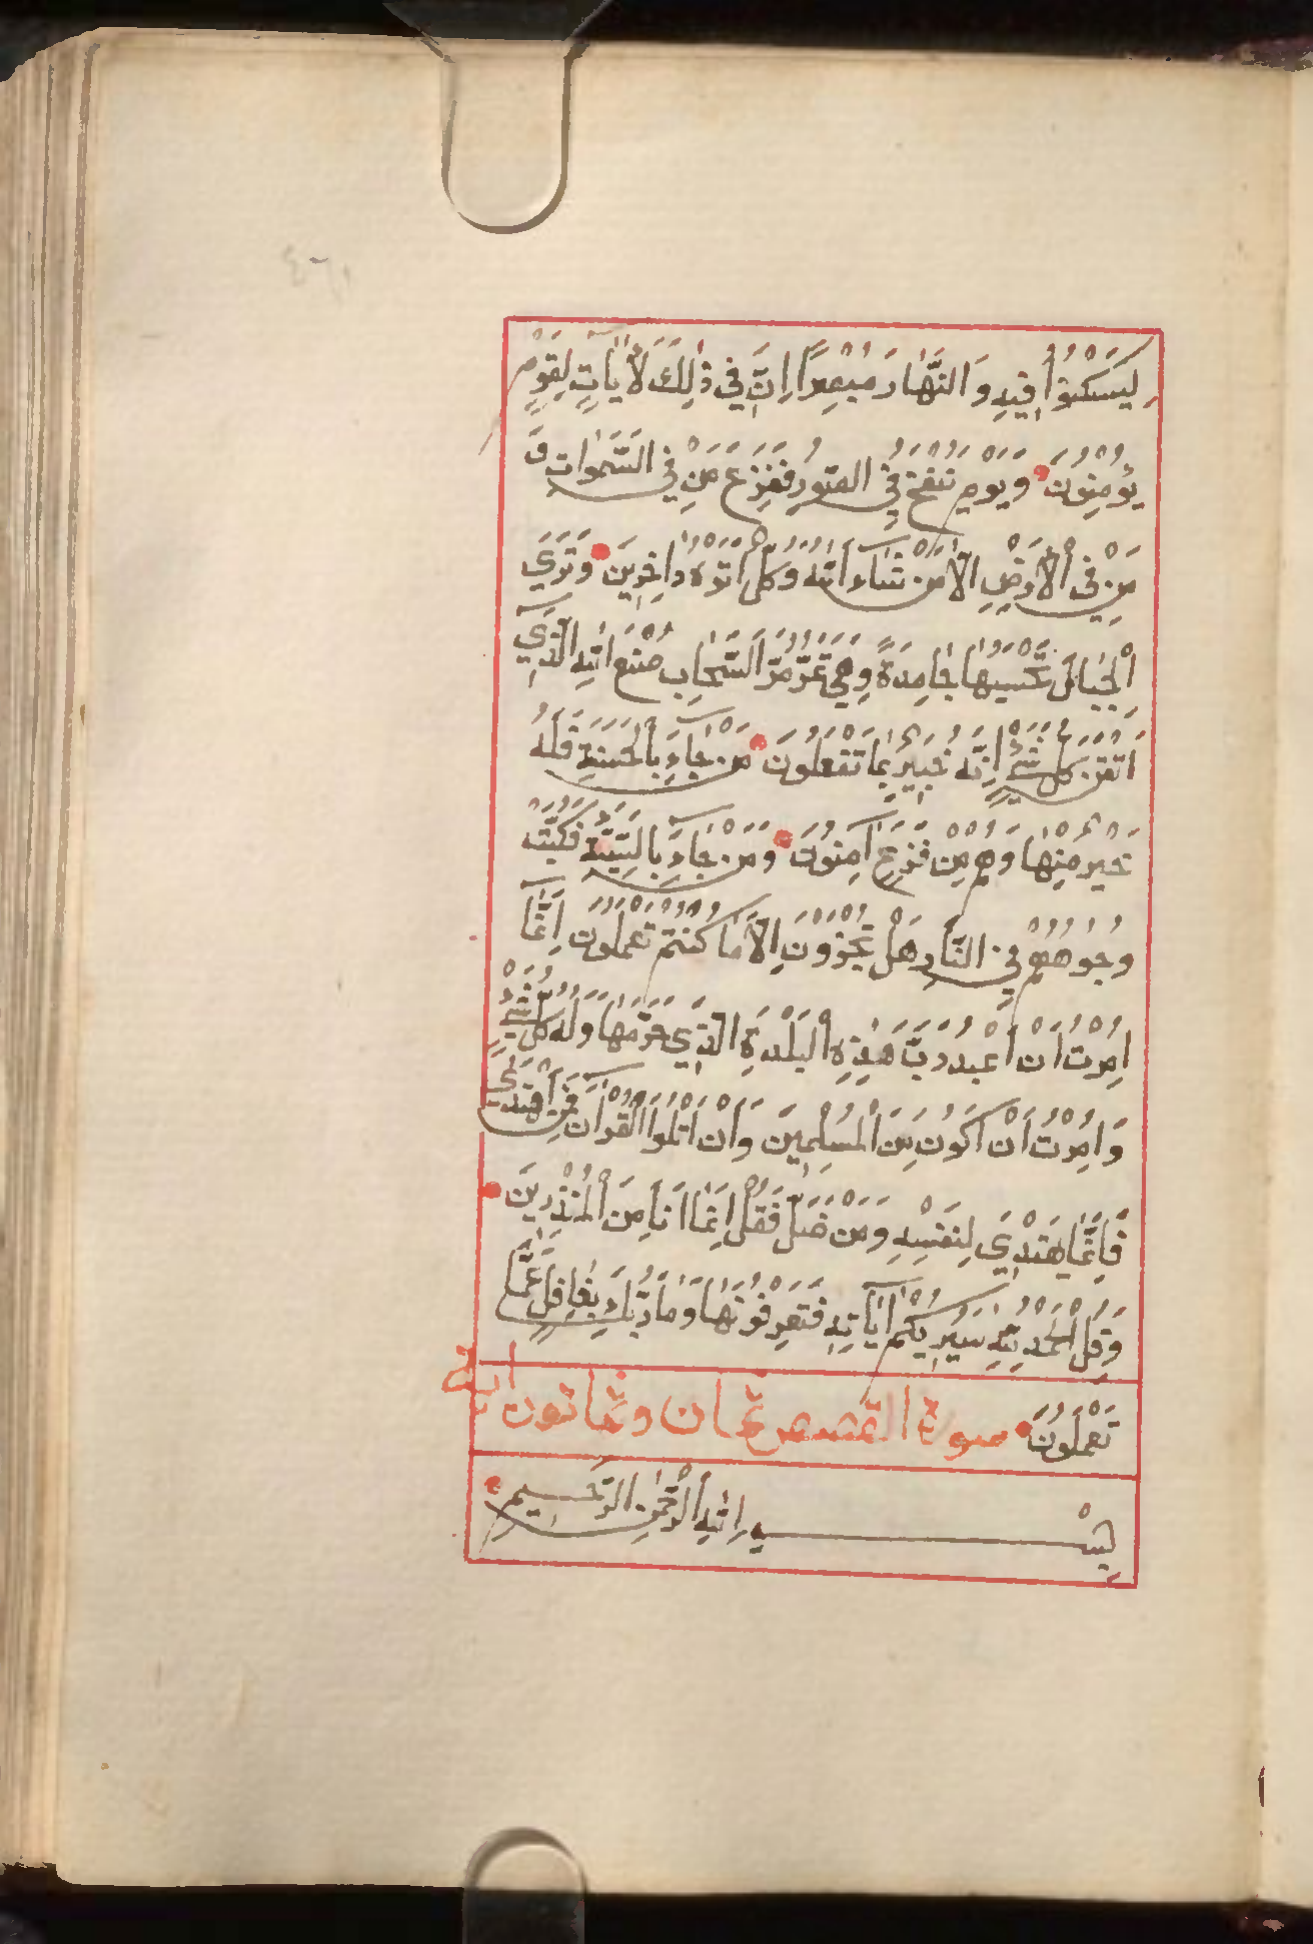 لِيَسْكُنُوا فِيهِ وَالنَّهَارَ مُبْصِرًا اِنَّ فِي ذٰلِكَ لَاٰيَاتٍ لِقَوْمٍ
يُؤْمِنُونَ وَيَوْمَ يُنْفَخُ فِي الصُّورِ فَفَزِعَ مَنْ فِي السَّمٰوَاتِ وَ
مَنْ فِي الْاَرْضِ اِلَّا مَنْ شَاءَ اللّٰهُ وَكُلٌّ اَتَوْهُ دَاخِرِينَ وَتَرَي
الْجِبَالَ تَحْسَبُهَا جَامِدَةً وَهِيَ تَمُرُّ مَرَّ السَّحَابِ صُنْعَ اللّٰهِ الَّذِي
اَتْقَنَ كُلَّ شَيْءٍ اِنَّهُ خَبِيرٌ بِمَا تَفْعَلُونَ مَنْ جَاءَ بِالْحَسَنَةِ فَلَهُ
خَيْرٌ مِنْهَا وَهُمْ مِنْ فَزَعٍ اٰمِنُونَ وَمَنْ جَاءَ بِالسَّيِّئَةِ فَكُبَّتْ
وُجُوهُهُمْ فِي النَّارِ هَلْ تُجْزَوْنَ اِلَّا مَا كُنْتُمْ تَعْمَلُونَ اِنَّمَا
اُمِرْتُ اَنْ اَعْبُدَ رَبَّ هٰذِهِ الْبَلْدَةِ الَّذِي حَرَّمَهَا وَلَهُ كُلُّ شَيْءٍ
وَاُمِرْتُ اَنْ اَكُونَ مِنَ الْمُسْلِمِينَ وَاَنْ اَتْلُوَا الْقُرْاٰنَ فَمَنِ اهْتَدٰي
فَاِنَّمَا يَهْتَدِي لِنَفْسِهِ وَمَنْ ضَلَّ فَقُلْ اِنَّمَا اَنَا مِنَ الْمُنْذِرِينَ
وَقُلِ الْحَمْدُ لِلّٰهِ سَيُرِيكُمْ اٰيَاتِهِ فَتَعْرِفُونَهَا وَمَا رَبُّكَ بِغَافِلٍ عَمَّا
تَعْمَلُونَ سورة القصص ثمان وثمانون اية
بِسْمِ اللّٰهِ الرَّحْمٰنِ الرَّحِيمِ